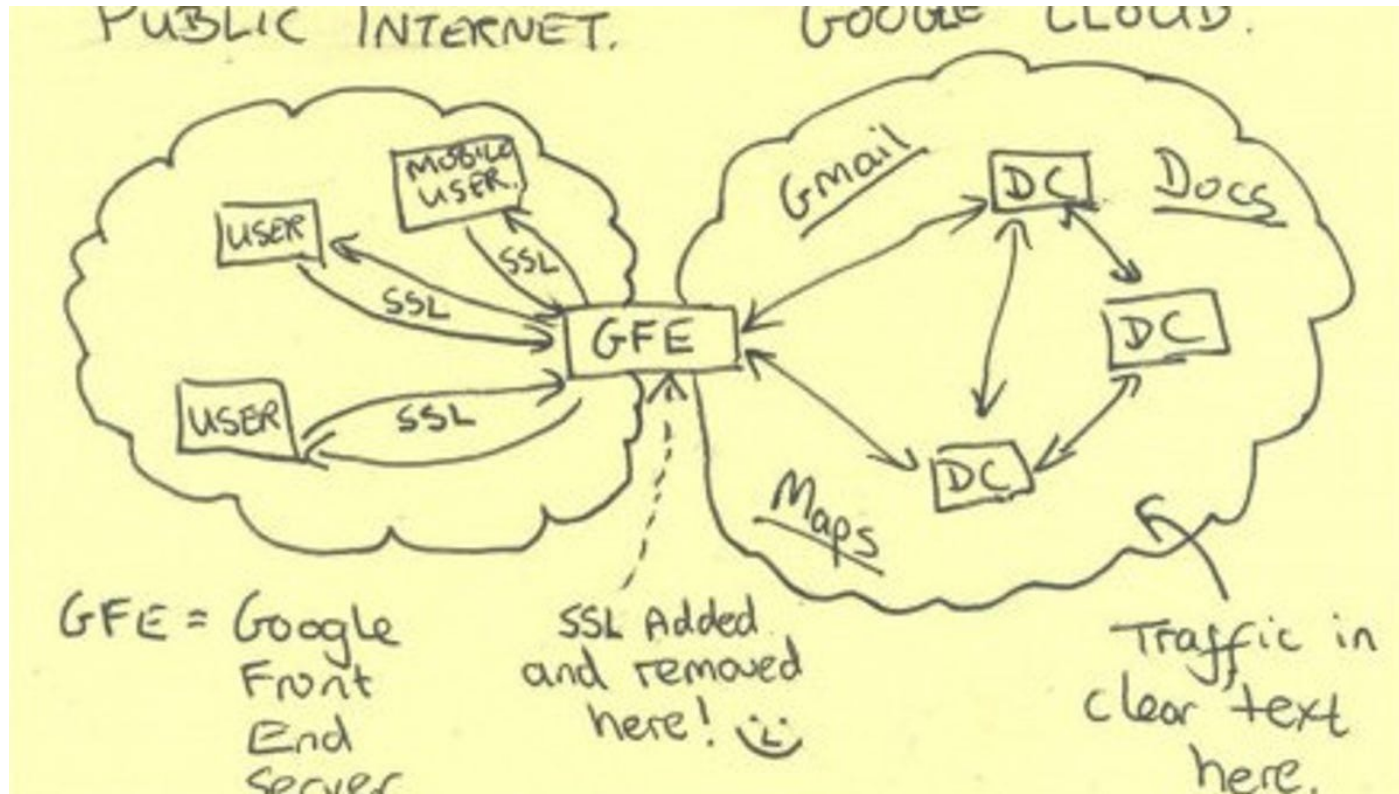 PUBLIC INTERNET.
GOOGLE CLOUD.
MOBILE
USER.
USER
SSL
SSL
GFE
USER
SSL
Gmail
DC
Docs
DC
DC
Maps
GFE = Google
Front
End
Server
SSL Added
and removed
here!
Traffic in
clear text
here.